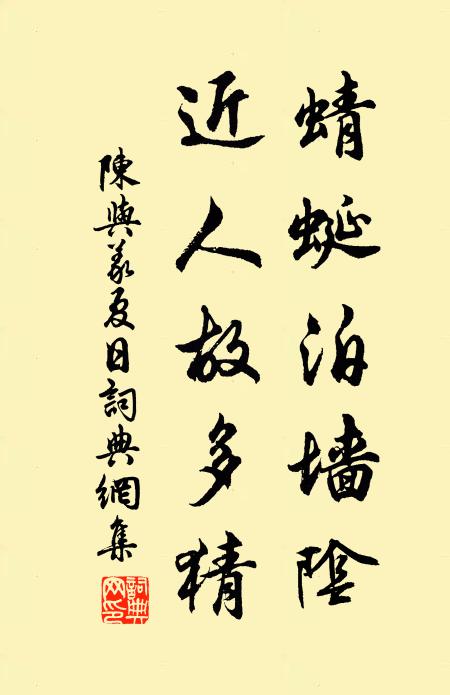 蜻蜓泊墙陰
近人故多猜
陳與義夏日詞典網集
詞典网印